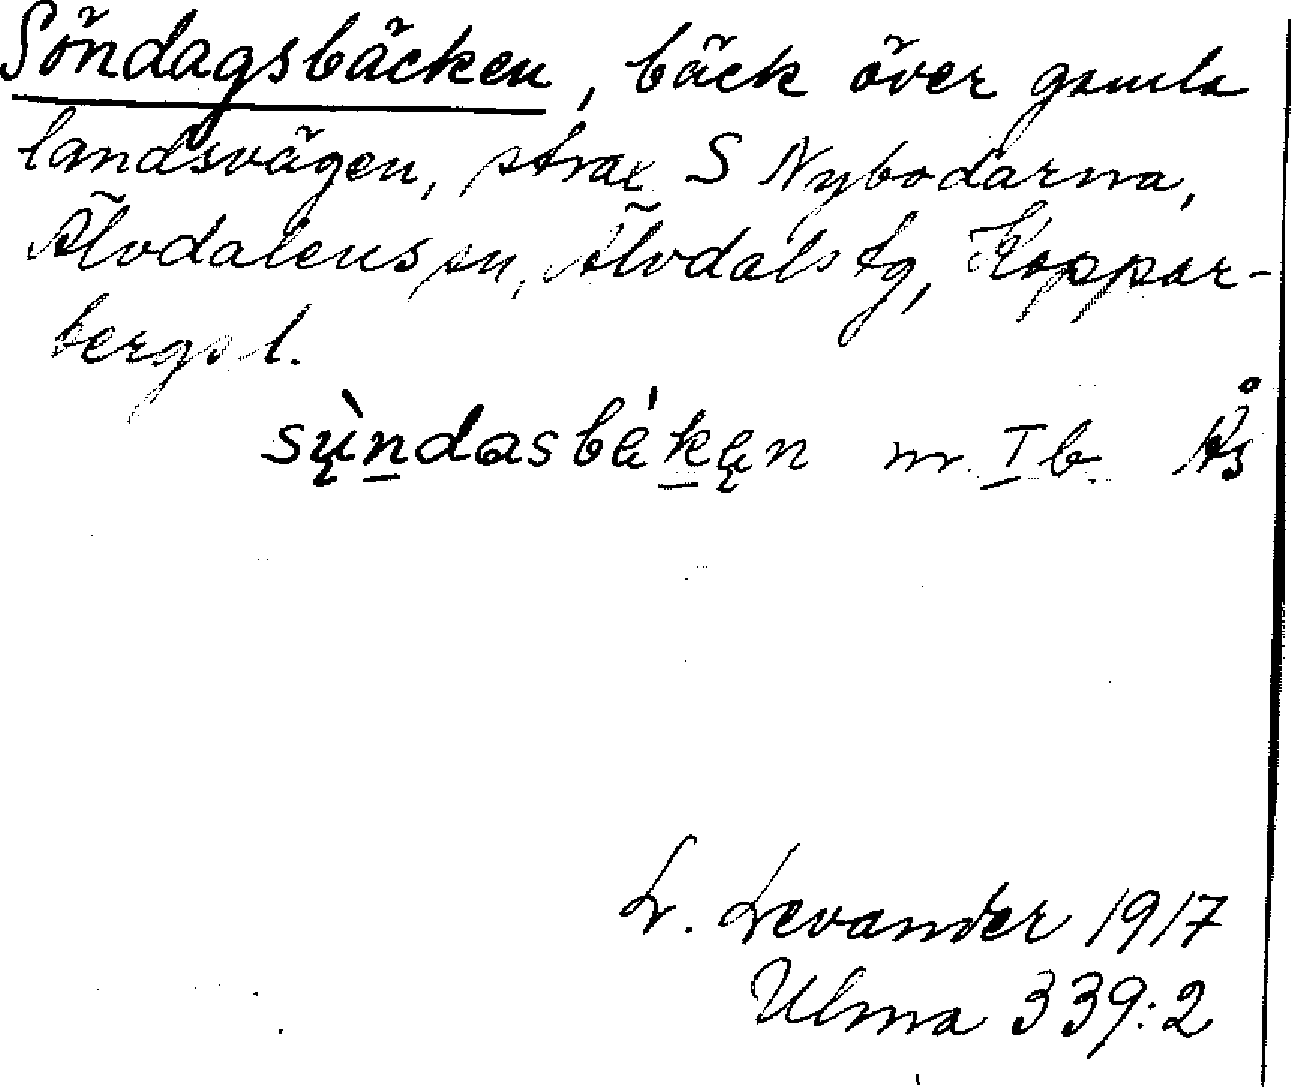 Söndagsbäcken, bäck över gamla
landsvägen, strax S Nybodarna,
Älvdalens sn, Älvdals tg, Koppar-
bergs l.
sùndasbéken m. I b. Ås
L. Levander 1917
Ulma 339:2